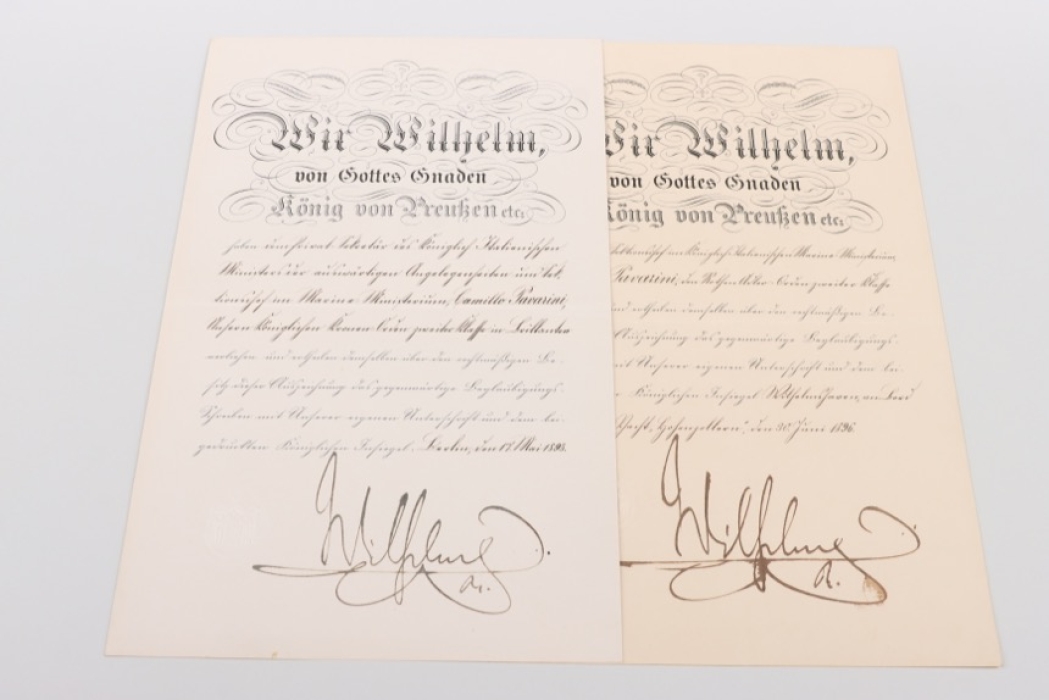 Wir Wilhelm,
von Gottes Gnaden
König von Preußen etc.
haben dem Privat Sekretär des Königlich Italienischen
Ministers der auswärtigen Angelegenheiten und Sek-
tionschef im Marine Ministerium, Camillo Pavarini,
Unsern Königlichen Kronen Orden zweiter Klasse in Brillanten
verliehen und ertheilen demselben über den rechtmäßigen Be-
sitz dieser Auszeichnung das gegenwärtige Beglaubigungs-
Schreiben mit Unserer eigenen Unterschrift und dem bei-
gedruckten Königlichen Insiegel. Berlin, den 17. Mai
Wilhelm
R.
Wir Wilhelm,
von Gottes Gnaden
König von Preußen etc.
im Königlich Italienischen Marine Ministerium,
Pavarini, den Rothen Adler-Orden zweiter Klasse
und ertheilen demselben über den rechtmäßigen Be-
Auszeichnung das gegenwärtige Beglaubigungs-
mit Unserer eigenen Unterschrift und dem bei-
Königlichen Insiegel. Wilhelmshaven, an Bord
Yacht „Hohenzollern“, den 30. Juni 1896.
Wilhelm
R.